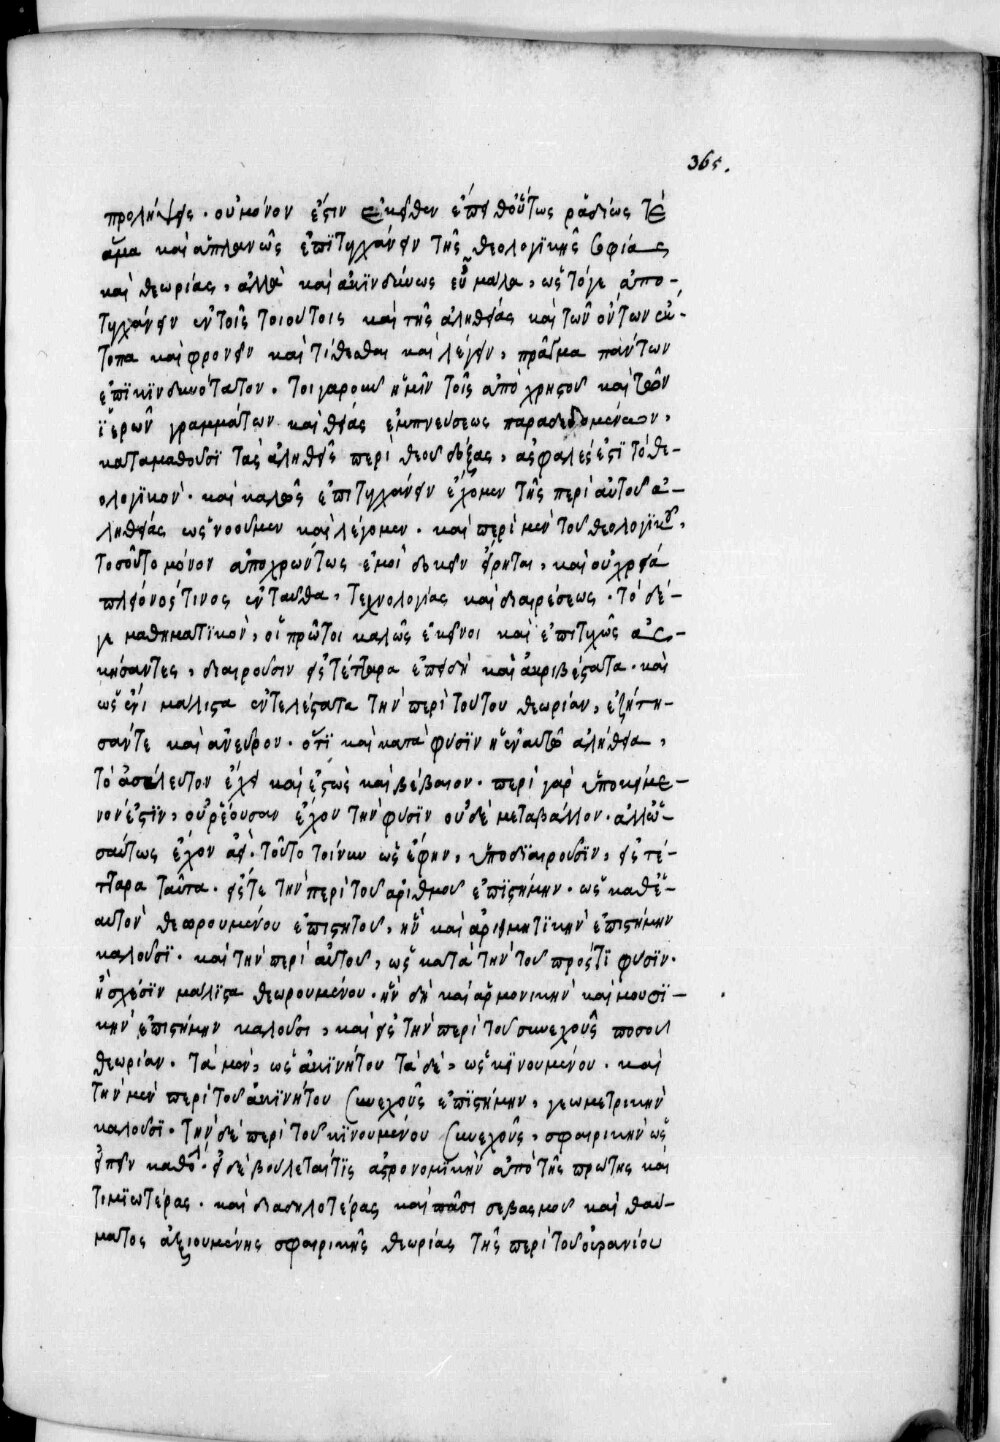 365.
προλήψεις. οὐ μόνον ἐστὶν ἐκεῖθεν ἐπελθόντως ῥαδίως τε
ἅμα καὶ ἀπλανῶς ἐπιτυγχάνειν τῆς θεολογικῆς σοφίας
καὶ θεωρίας, ἀλλὰ καὶ ἀκινδύνως εὖ μάλα, ὡς τόγε ἀπο-
τυγχάνειν ἐν τοῖς τοιούτοις καὶ τῆς ἀληθείας καὶ τῶν ὄντων ἐκ-
τοπα καὶ φρονεῖν καὶ τίθεσθαι καὶ λέγειν, πρᾶγμα πάντων
ἐπικινδυνότατον. τοιγαροῦν ἡμῖν τοῖς ἀπὸ χριστοῦ καὶ τῶν
ἱερῶν γραμμάτων καὶ θείας ἐμπνεύσεως παραδεδομένων,
καταμαθοῦσι τὰς ἀληθεῖς περὶ θεοῦ δόξας, ἀσφαλές ἐστι τὸ θε-
ολογικόν. καὶ καλῶς ἐπιτυγχάνειν ἔχομεν τῆς περὶ αὐτοῦ ἀ-
ληθείας ὡς νοοῦμεν καὶ λέγομεν. καὶ περὶ μὲν τοῦ θεολογικοῦ,
τοσοῦτο μόνον ἀποχρώντως ἐμοὶ δοκεῖν εἴρηται, καὶ οὐ χρεία
πλείονός τινος ἐνταῦθα, τεχνολογίας καὶ διαιρέσεως. τὸ δέ-
γε μαθηματικὸν, οἱ πρῶτοι καλῶς ἐκεῖνοι καὶ ἐπιτυχῶς ἀσ-
κήσαντες, διαιροῦσιν εἰς τέτταρα ἐπειδὴ καὶ ἀκριβέστατα. καὶ
ὡς ἔνι μάλιστα ἐντελέστατα τὴν περὶ τούτου θεωρίαν, ἐζήτη-
σάν τε καὶ ἀνεῦρον. ὅτι καὶ κατὰ φύσιν ἡ ἐν αὐτῷ ἀλήθεια,
τὸ ἀσάλευτον ἔχει καὶ ἑστὼς καὶ βέβαιον. περὶ γὰρ ὑποκείμε-
νόν ἐστιν, οὐ ῥέουσαν ἔχον τὴν φύσιν οὐδὲ μεταβάλλον. ἀλλ' ὡ-
σαύτως ἔχον ἀεί. τοῦτο τοίνυν ὡς ἔφην, ὑποδιαιροῦσιν, εἰς τέ-
τταρα ταῦτα. εἴς τε τὴν περὶ τοῦ ἀριθμοῦ ἐπιστήμην. ὡς καθ' ἑ-
αυτὸν θεωρουμένου ἐπιστητοῦ, ἣν καὶ ἀριθμητικὴν ἐπιστήμην
καλοῦσι. καὶ τὴν περὶ αὐτοῦ, ὡς κατὰ τὴν τοῦ πρός τι φύσιν.
ἢ σχέσιν μάλιστα θεωρουμένου. ἣν δὴ καὶ ἁρμονικὴν καὶ μουσι-
κὴν ἐπιστήμην καλοῦσι, καὶ εἰς τὴν περὶ τοῦ συνεχοῦς ποσοῦ
θεωρίαν. τὰ μὲν, ὡς ἀκινήτου τὰ δὲ, ὡς κινουμένου. καὶ
τὴν μὲν περὶ τοῦ ἀκινήτου συνεχοῦς ἐπιστήμην, γεωμετρικὴν
καλοῦσι. τὴν δὲ περὶ τοῦ κινουμένου συνεχοῦς, σφαιρικὴν ὡς
εἰπεῖν καθό. εἰ δὲ βούλεταί τις ἀστρονομικὴν ἀπὸ τῆς πρώτης καὶ
τιμιωτέρας. καὶ διαδηλοτέρας καὶ πᾶσι σεβασμοῦ καὶ θαύ-
ματος ἀξιουμένης σφαιρικῆς θεωρίας τῆς περὶ τοῦ οὐρανίου